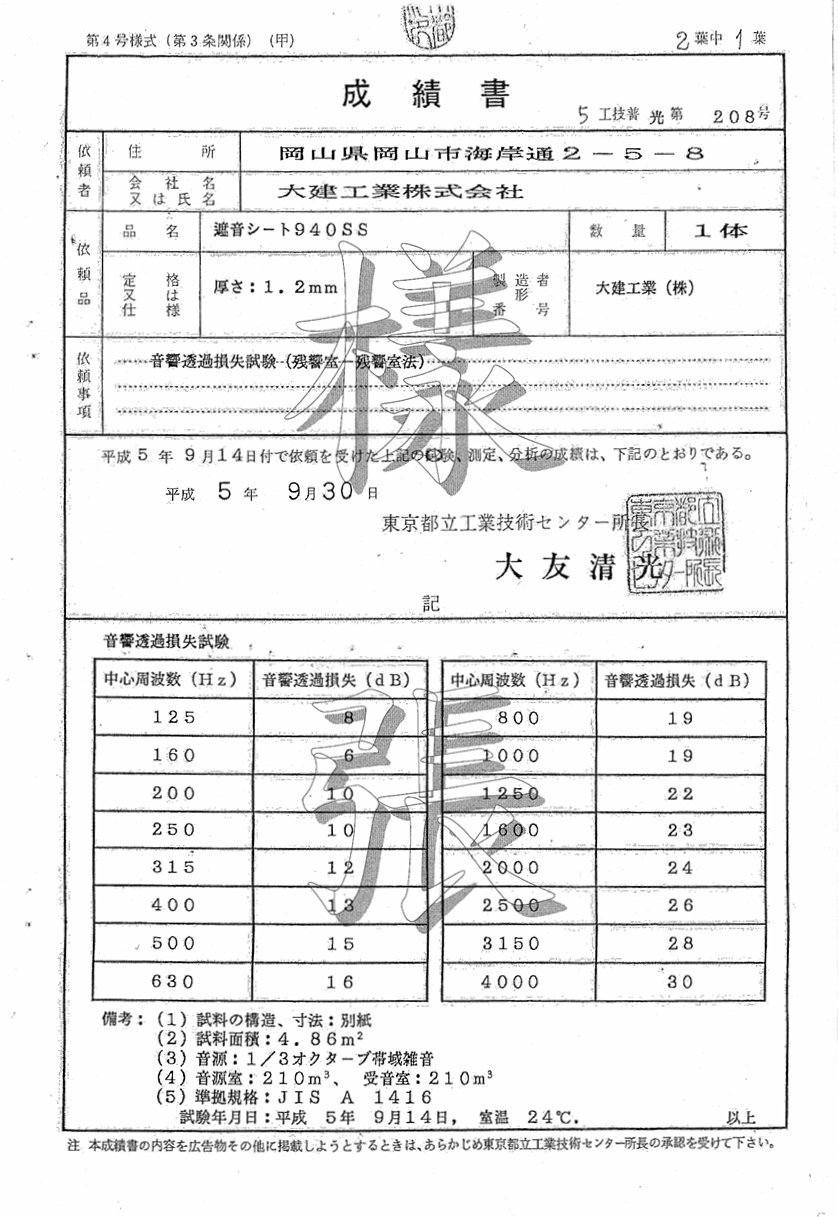 第4号様式（第3条関係）（甲）
2葉中1葉
成績書
5工技普光第 208号
依頼者
住所
岡山県岡山市海岸通2－5－8
会社名又は氏名
大建工業株式会社
依頼品
品名
遮音シート940SS
数量
1体
定格又は仕様
厚さ：1．2mm
製造者形番号
大建工業（株）
依頼事項
音響透過損失試験（残響室－残響室法）
平成5年9月14日付で依頼を受けた上記の試験、測定、分析の成績は、下記のとおりである。
平成 5年 9月30日
東京都立工業技術センター所長
大友清光
記
音響透過損失試験
中心周波数（Hz） 音響透過損失（dB） 中心周波数（Hz） 音響透過損失（dB）
125 8 800 19
160 6 1000 19
200 10 1250 22
250 10 1600 23
315 12 2000 24
400 13 2500 26
500 15 3150 28
630 16 4000 30
備考：（1）試料の構造、寸法：別紙
（2）試料面積：4．86m²
（3）音源：1／3オクターブ帯域雑音
（4）音源室：210m³、 受音室：210m³
（5）準拠規格：JIS A 1416
試験年月日：平成 5年 9月14日， 室温 24℃．
以上
注 本成績書の内容を広告物その他に掲載しようとするときは、あらかじめ東京都立工業技術センター所長の承認を受けて下さい。
様
張